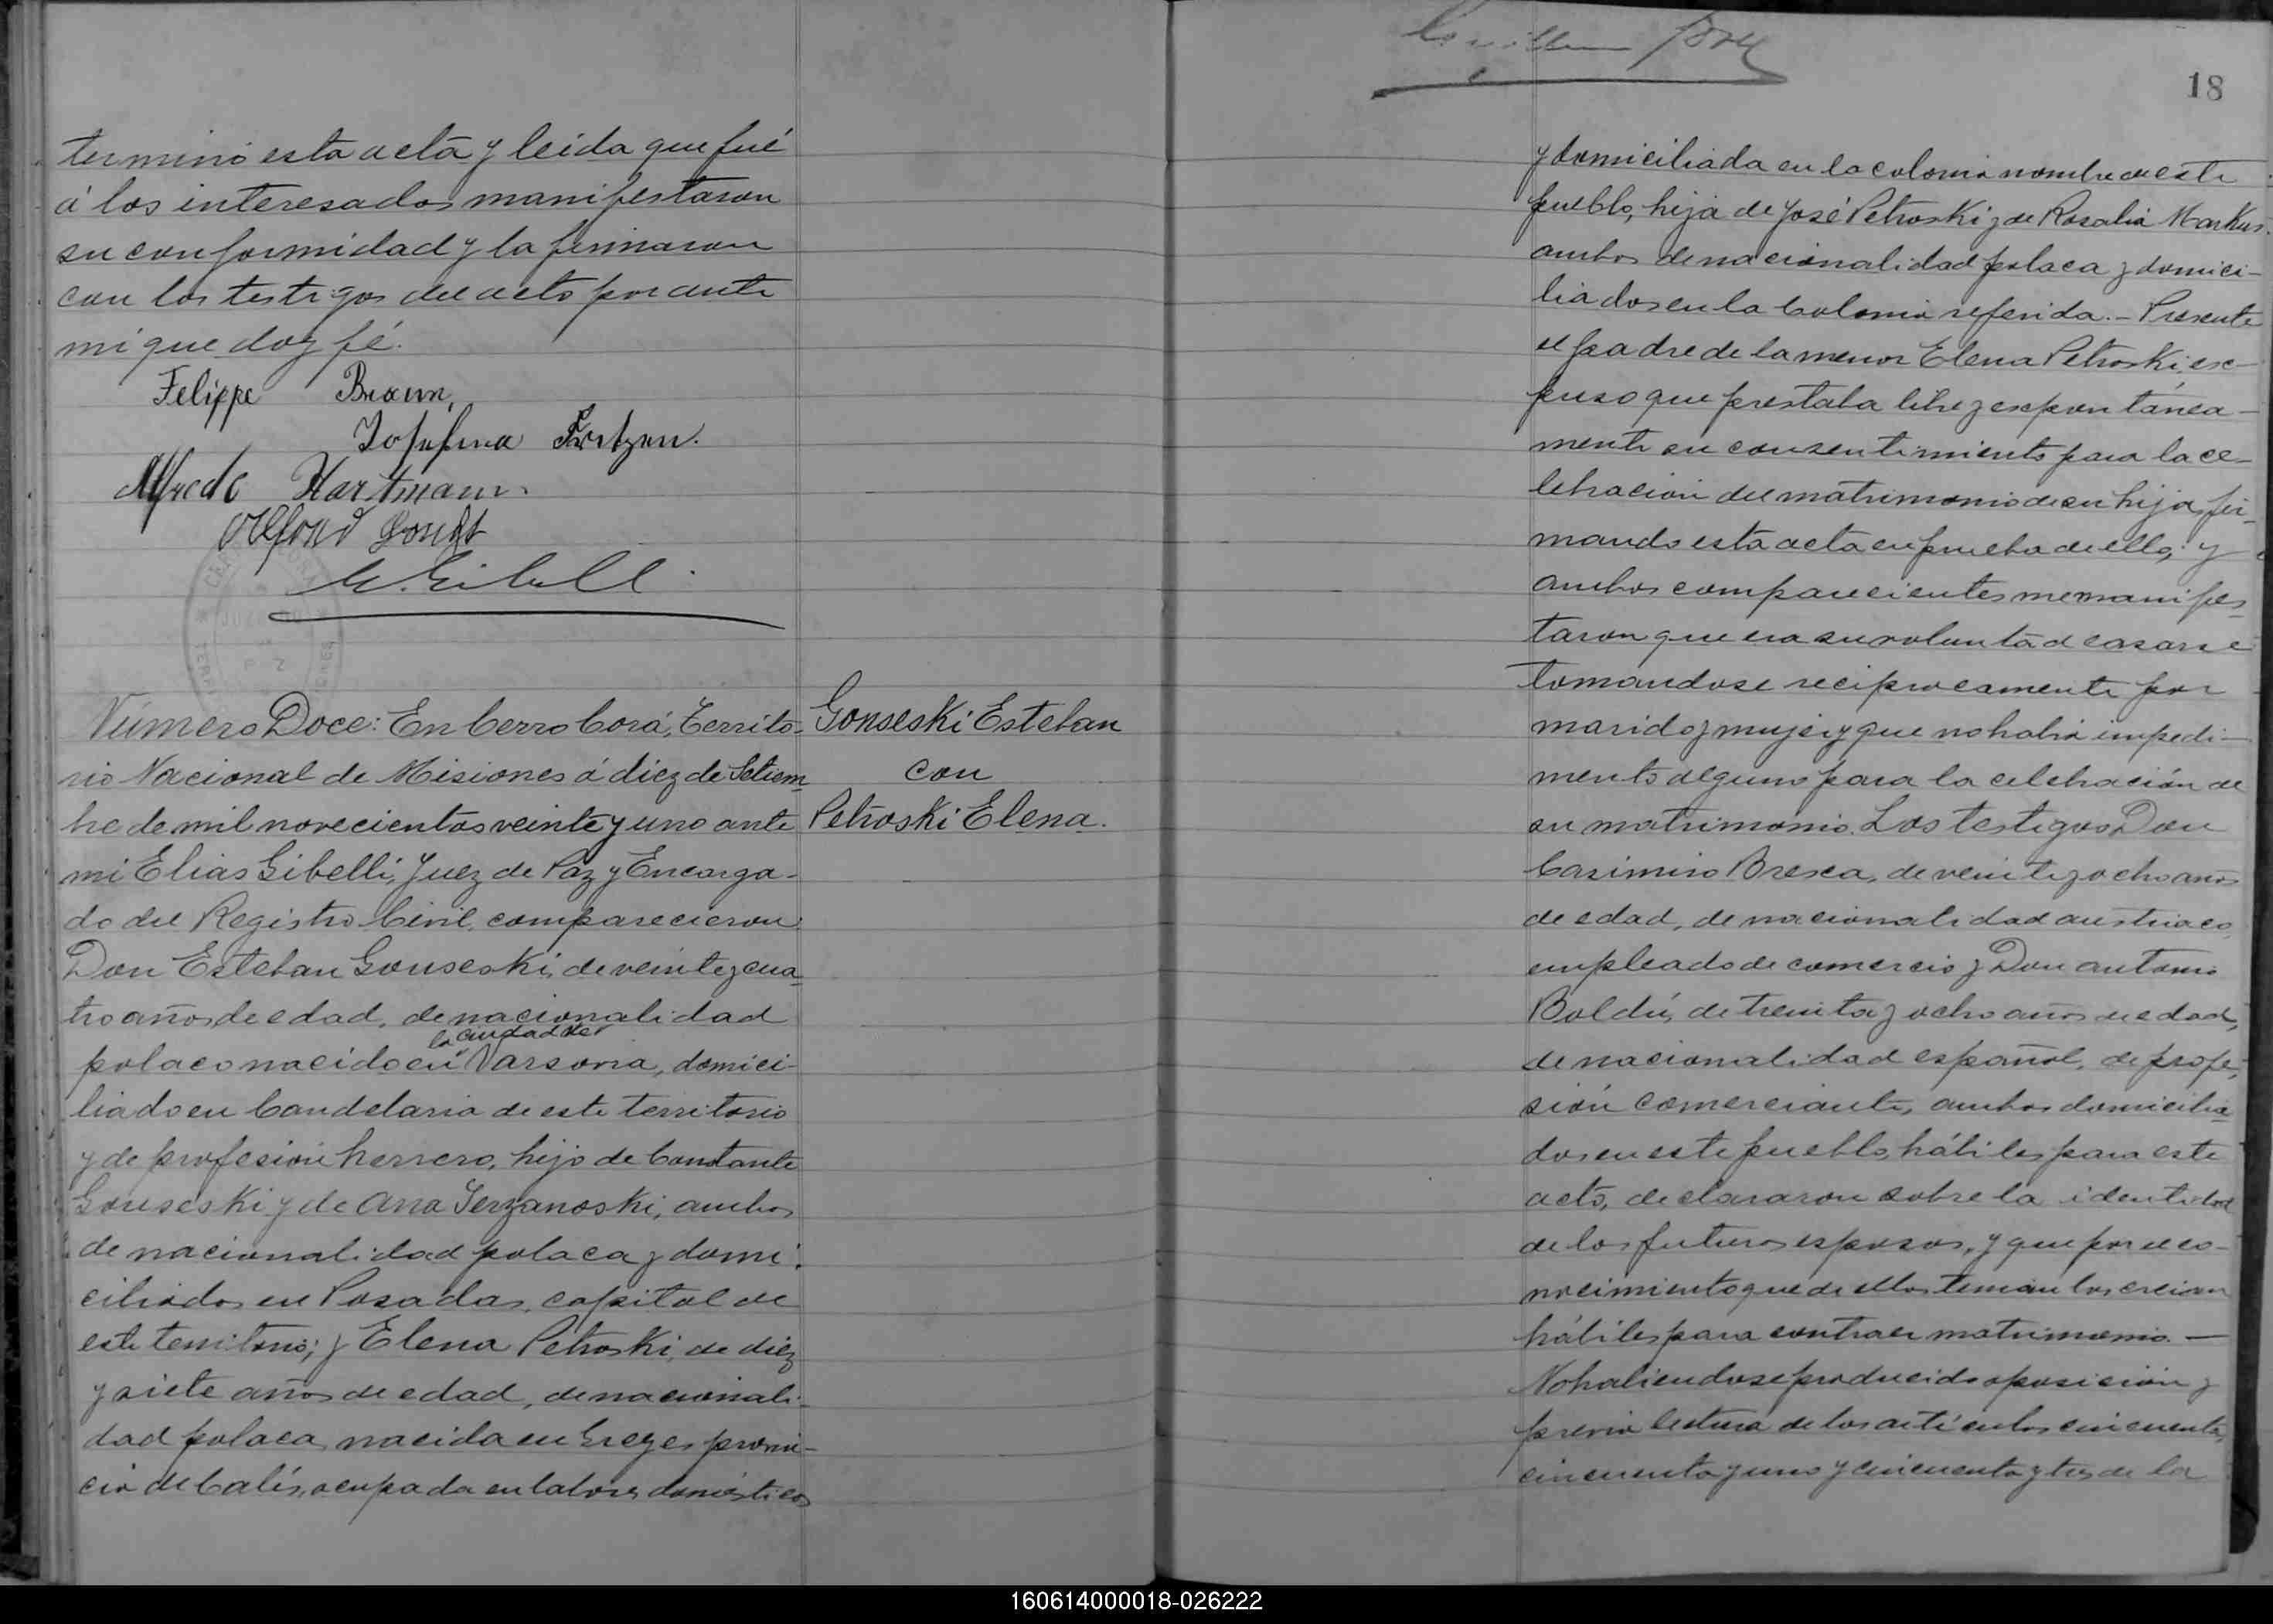 terminó esta acta y leida que fué
á los interesados manifestaron
su conformidad y la firmaron
con los testigos del acto por ante
mi que doy fé.
Felippe Braun,
Josefina Fritzen.
Alfredo Hartmann.
E. Gibelli
Número Doce: En Cerro Corá, Territo-
rio Nacional de Misiones á diez de Setiem
bre de mil novecientos veinte y uno ante
mi Elias Gibelli, Juez de Paz y Encarga-
do del Registro Civil, comparecieron:
Don Esteban Gonseski, de veinte y cua
tro años de edad, de nacionalidad
la ciudad de
polaco nacido en Varsovia, domici-
liado en Candelaria de este territorio
y de profesión herrero, hijo de Constante
Gonseski y de Ana Jerzanoski, ambos
de nacionalidad polaca y domi-
ciliados en Posadas, capital de
este territorio; y Elena Petroski, de diez
y siete años de edad, de nacionali-
dad polaca, nacida en Greges provin-
cia de Calés, ocupada en labores domésticos
Gonseski Esteban
con
Petroski Elena.
18
y domiciliada en la colonia nombre de este
pueblo, hija de José Petroski y de Rosalia Markus.
ambos de nacionalidad polaca y domici-
liados en la Colonia referida.- Presente
el padre de la menor Elena Petroski, ex-
puso que prestaba libre y expontánea-
mente su consentimiento para la ce-
lebración del matrimonio de su hija, fir-
mando esta acta en prueba de ello; y
ambos comparecientes me manifes-
taron que era su voluntad casarse
tomandose reciprocamente por
marido y mujer y que no habia impedi-
mento alguno para la celebración de
su matrimonio. Los testigos Don
Casimiro Bresca, de veinte y ocho anos
de edad, de nacionalidad austriaco,
empleado de comercio y Don Antonio
Boldú, de treinta y ocho años de edad,
de nacionalidad español, de profe-
sión comerciante, ambos domicilia
dos en este pueblo, hábiles para este
acto, declararon sobre la identidad
de los futuros esposos, y que por el co-
nocimiento que de ellos tenian los creian
hábiles para contraer matrimonio. —
No habiendose producido oposición y
previa lectura de los artículos cincuenta,
cincuenta y uno y cincuenta y tres de la
160614000018-026222